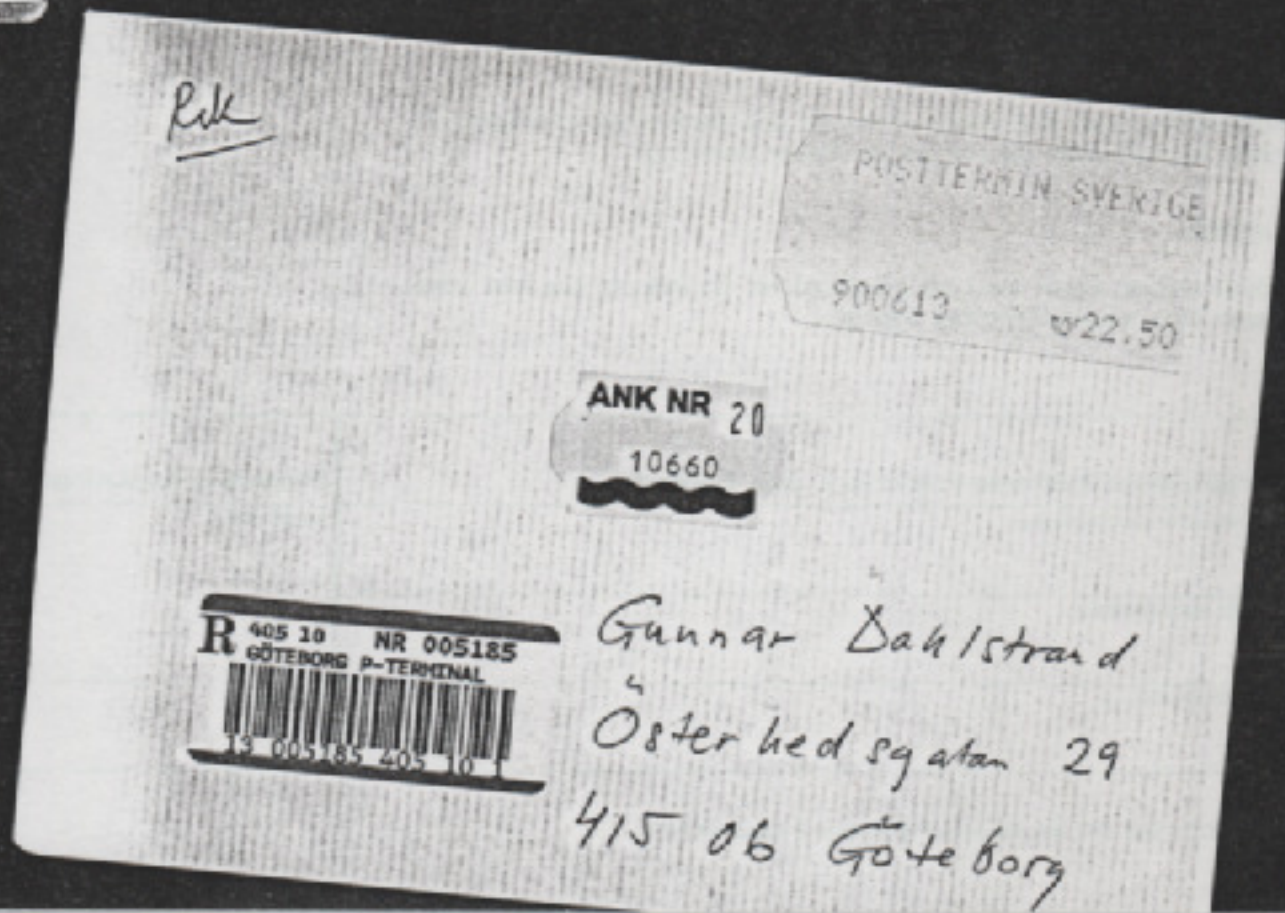 Rek
POSTTERMIN SVERIGE
900613 22.50
ANK NR 20
10660
R 405 10 NR 005185
GÖTEBORG P-TERMINAL
13 005185 405 10 1
Gunnar Dahlstrand
Österhedsgatan 29
415 06 Göteborg